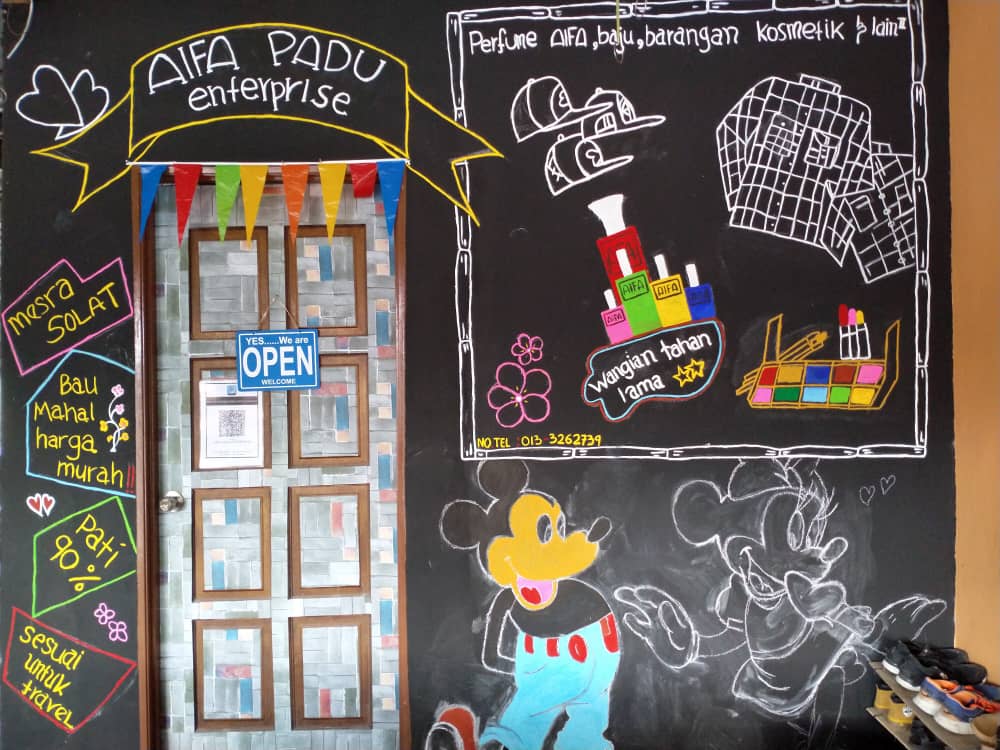 AIFA PADU
enterprise
Perfume AIFA, baju, barangan kosmetik & lain²
AIFA
AIFA
AIFA
wangian tahan
lama
NO TEL : 013-3262739
YES.....We are
OPEN
WELCOME
mesra
SOLAT
Bau
Mahal
harga
murah!!
Pati
90%
sesuai
untuk
travel